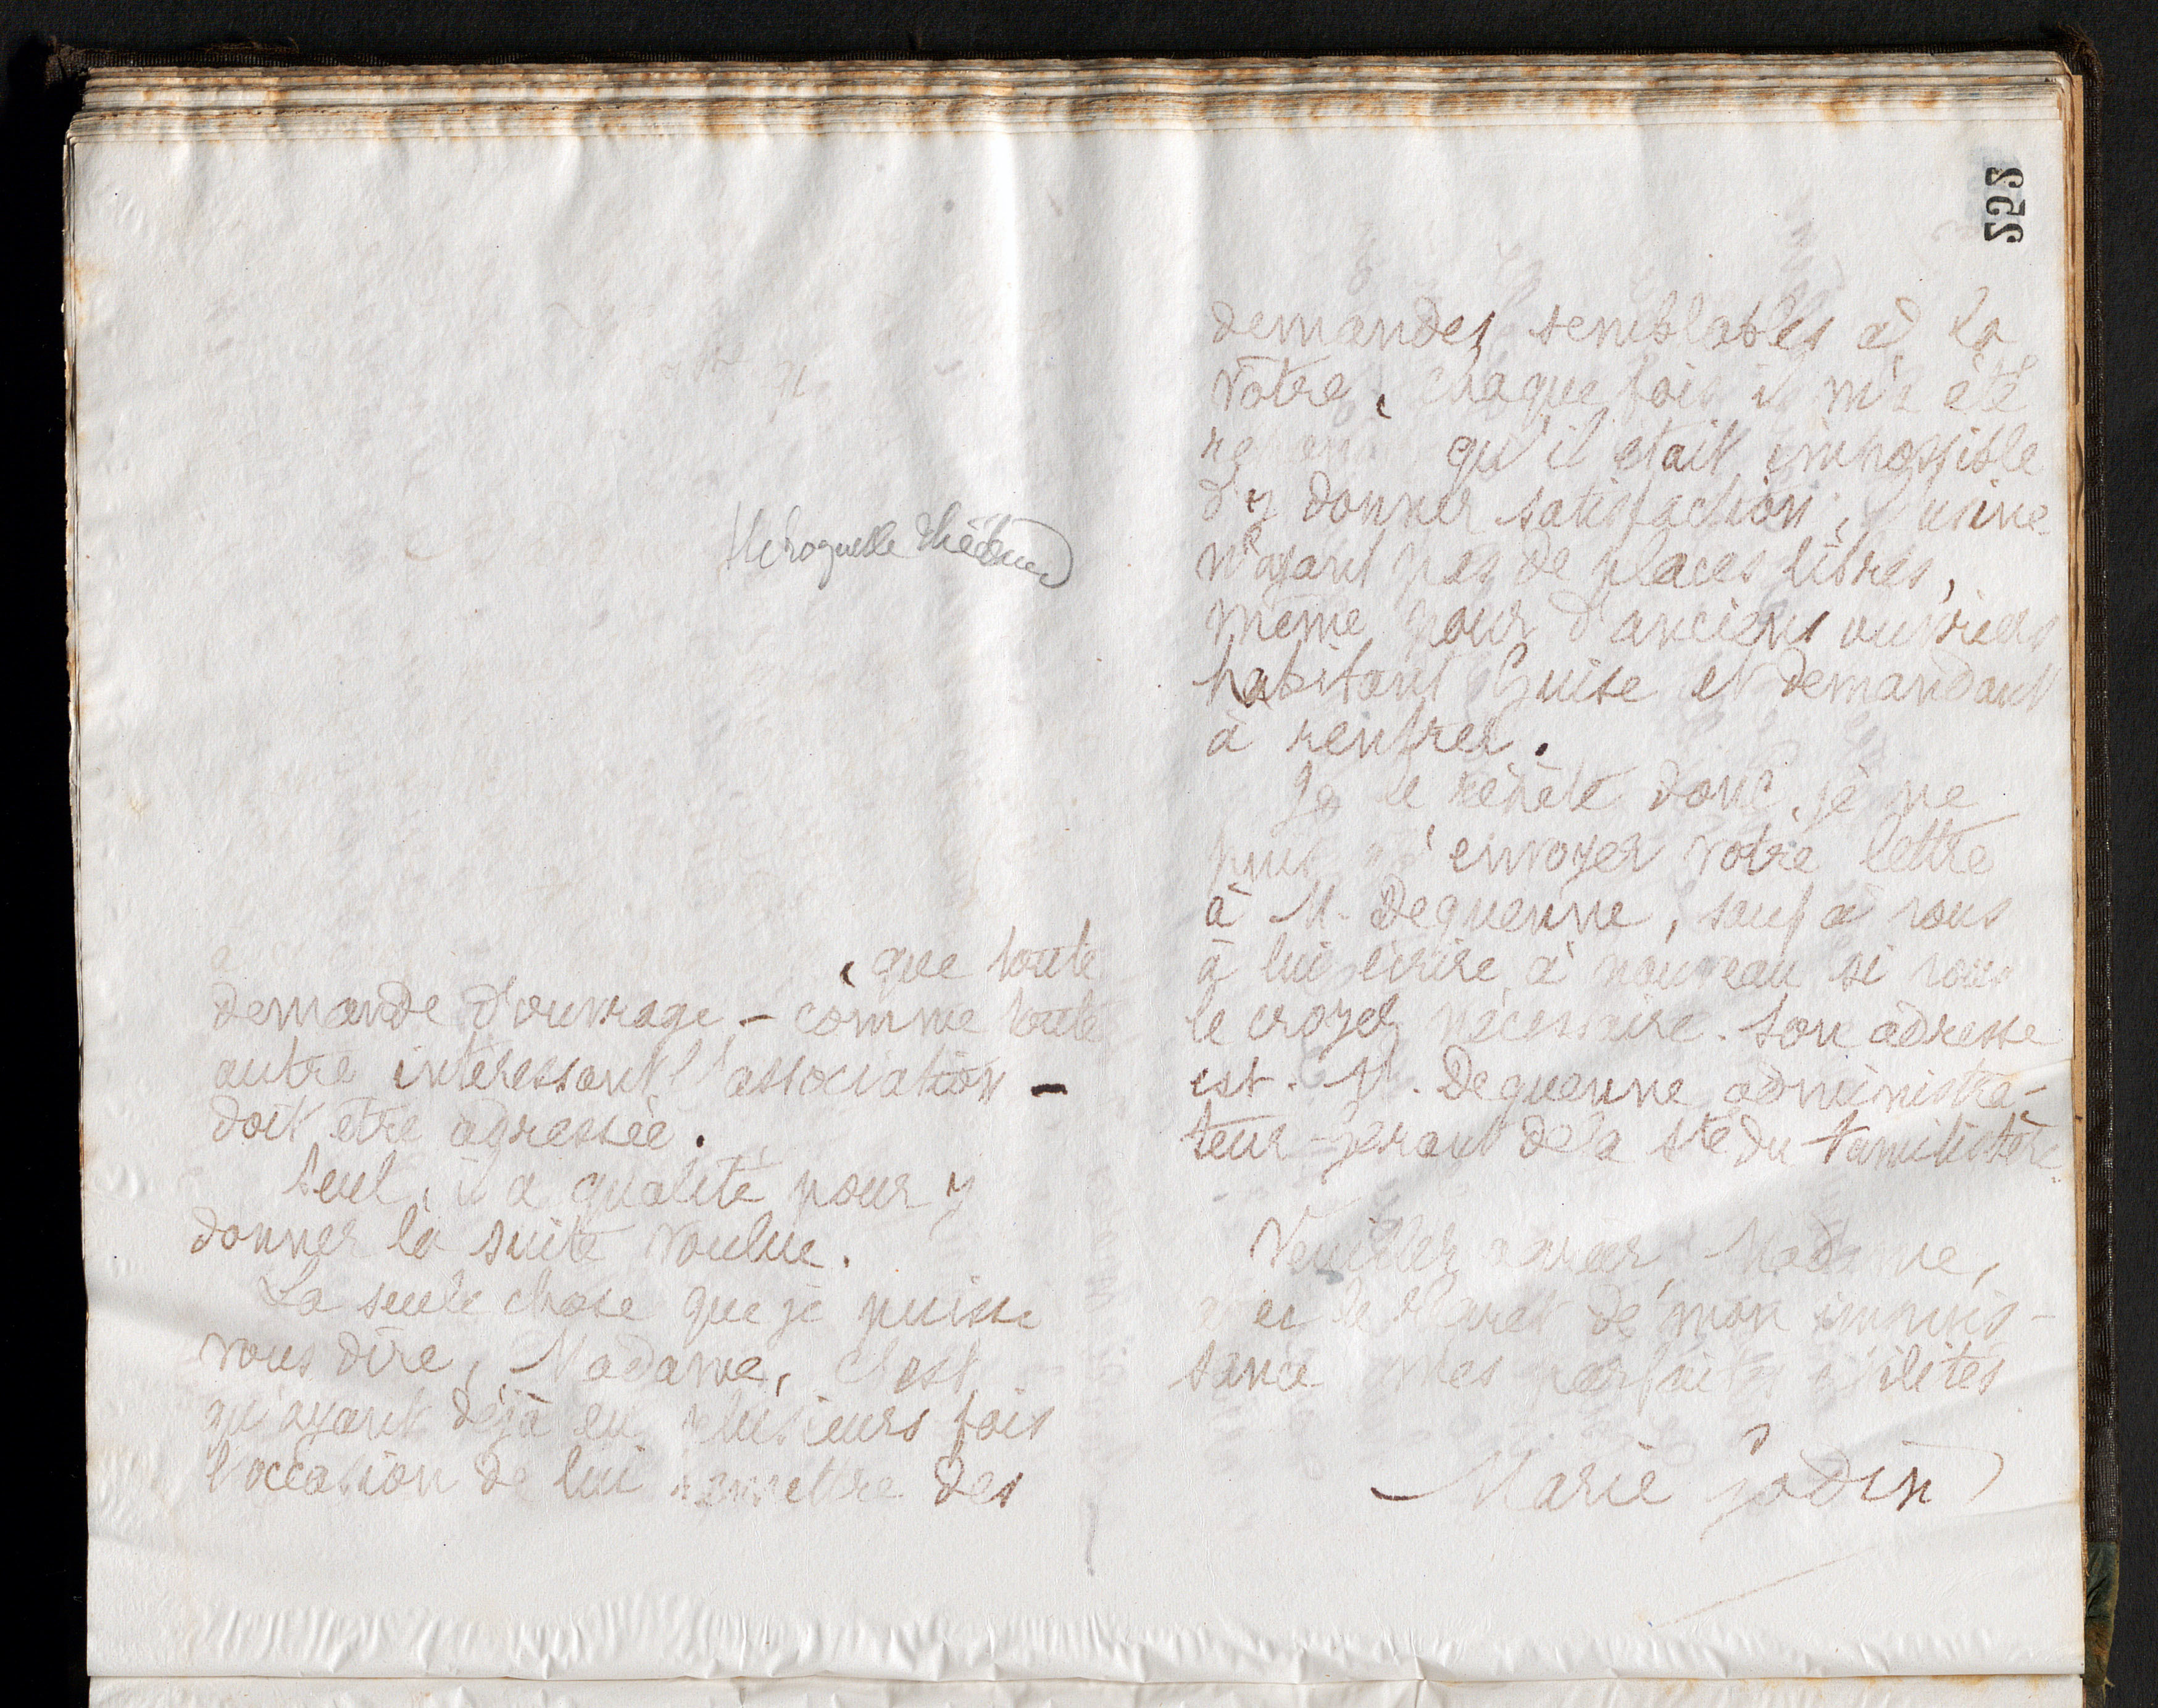 528
, que toute
demande d'ouvrage, - comme toute
autre intéressant l'association -
doit être adressée.
Seul, il a qualité pour y
donner la suite voulue.
La seule chose que je puisse
vous dire, Madame, c'est
qu'ayant déjà eu plusieurs fois
l'occasion de lui remettre des
demandes semblables à la
vôtre, chaque fois il m'a été
qu'il était impossible
d'y donner satisfaction, l'usine
n'ayant pas de places libres,
même pour d'anciens ouvriers
habitant Guise et demandant
à rentrer.
Je le répète donc, je ne
puis envoyer votre lettre
à M. Dequenne, sauf à vous
à lui écrire à nouveau si vous
le croyez nécessaire. Son adresse
est. M. Dequenne administra-
teur-gérant de la Sté du Familistère.
Veuillez agréer, Madame,
avec le regret de mon impuis-
sance mes parfaites civilités
Marie Godin